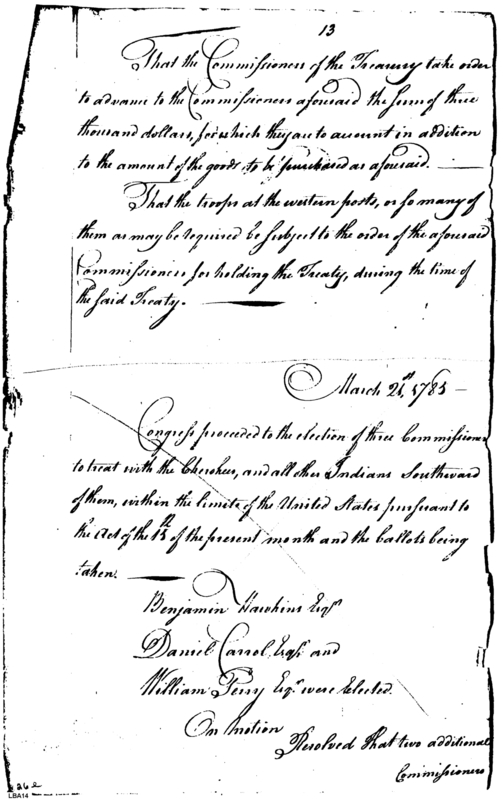 13
That the Commissioners of the Treasury take order
to advance to the Commissioners aforesaid the sum of three
thousand dollars, for which they are to account in addition
to the amount of the goods to be purchased as aforesaid.
That the troops at the western posts, or so many of
them as may be required be subject to the order of the aforesaid
Commissioners for holding the Treaty, during the time of
the said Treaty.
March 21st, 1785
Congress proceeded to the election of three Commissioners
to treat with the Cherokees, and all other Indians Southward
of them, within the limits of the United States pursuant to
the Act of the 15th of the present month and the ballots being
taken.
Benjamin Hawkins Esqr
Daniel Carrol, Esqr. and
William Perry Esqr. were Elected.
On motion
Resolved That two additional
Commissioners
LBA14